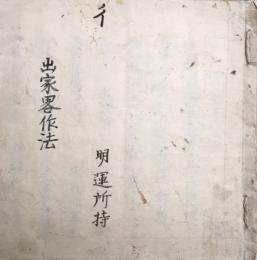 明運所持
出家畧作法